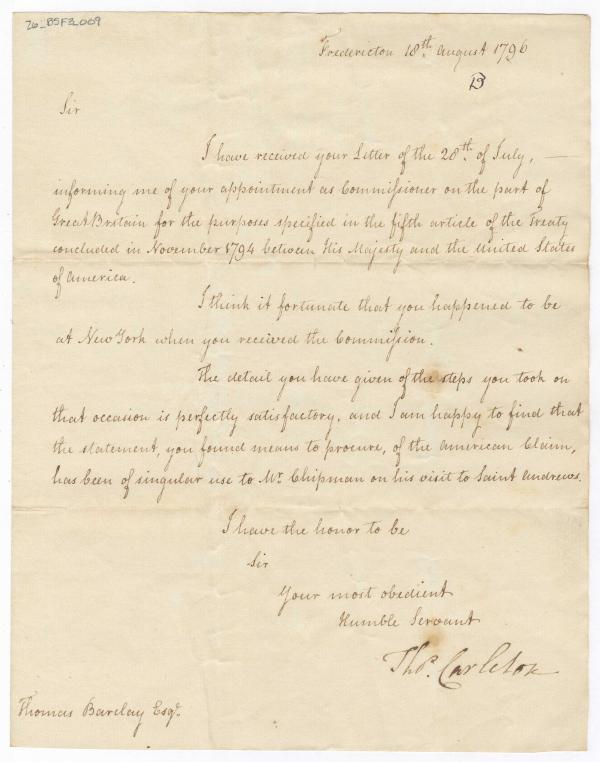 26_BSF3_009
Fredericton 18th. August 1796
B
Sir
I have received your Letter of the 28th. of July, —
informing me of your appointment as Commissioner on the part of
Great Britain for the purposes specified in the fifth article of the Treaty
concluded in November 1794 between His Majesty and the United States
of America.
I think it fortunate that you happened to be
at New York when you received the Commission.
The detail you have given of the steps you took on
that occasion is perfectly satisfactory, and I am happy to find that
the statement, you found means to procure, of the American Claim,
has been of singular use to Mr. Chipman on his visit to Saint Andrews.
I have the honor to be
Sir
Your most obedient
Humble Servant
Thos. Carleton
Thomas Barclay Esqr.